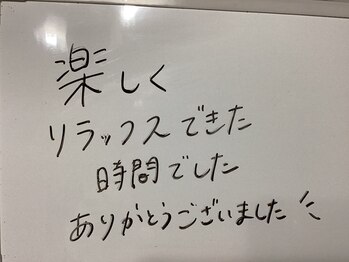 楽しく
リラックスできた
時間でした
ありがとうございました